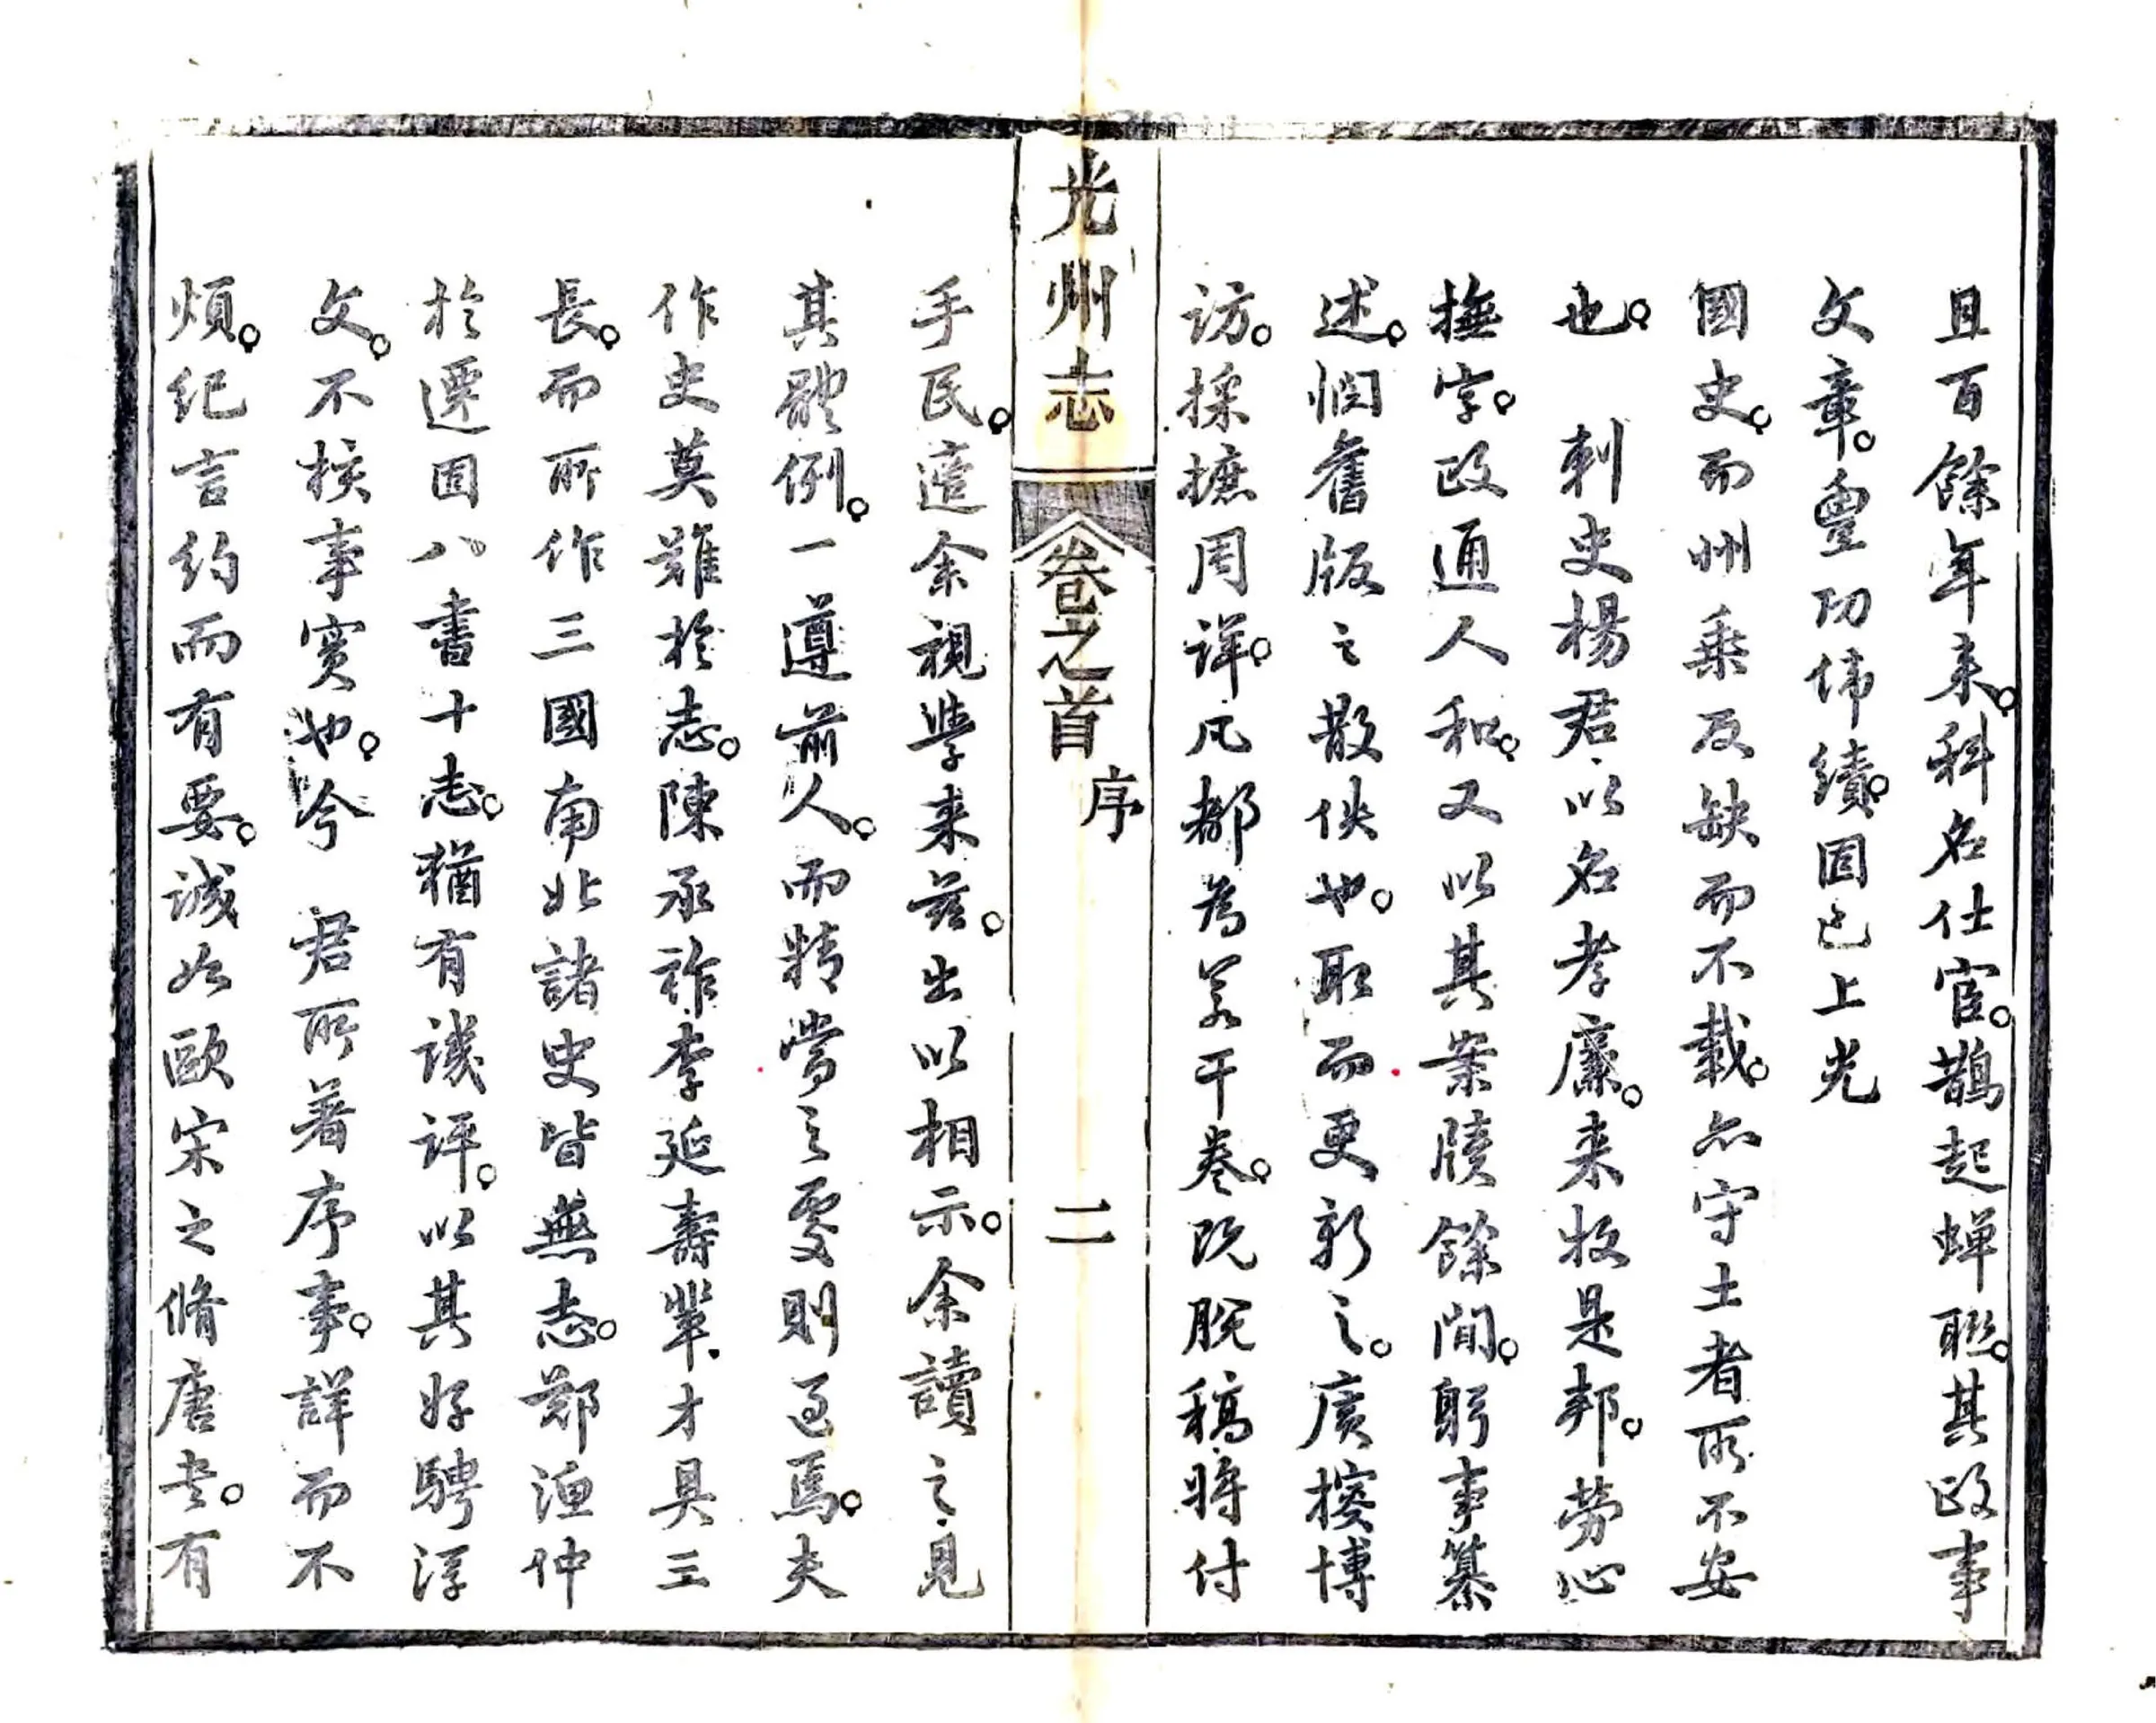 且百餘年来。科名仕宦。鵲起蟬聯。其政事
文章。豐功偉績。固已上光
國史。而州乗反缺而不載。亦守土者所不安
也。　刺史楊君以名孝廉。来牧是邦。勞心
撫字。政通人和。又以其案牘餘閒。躬事纂
述。憫舊版之散佚也。取而更新之。廣搜博
访。採摭周详。凡都為若干卷。既脱稿将付
光州志　卷之首　序　二
手民。適余視學来兹。出以相示。余讀之見
其體例。一遵前人。而精當之處則過焉。夫
作史莫難於志。陳承祚李延壽輩才具三
長。而所作三國南北諸史皆無志。鄭漁仲
於遷固八書十志。猶有譏評。以其好騁浮
文。不核事實也。今　君所著序事。詳而不
煩。纪言约而有要。诚如歐宋之脩唐书。有